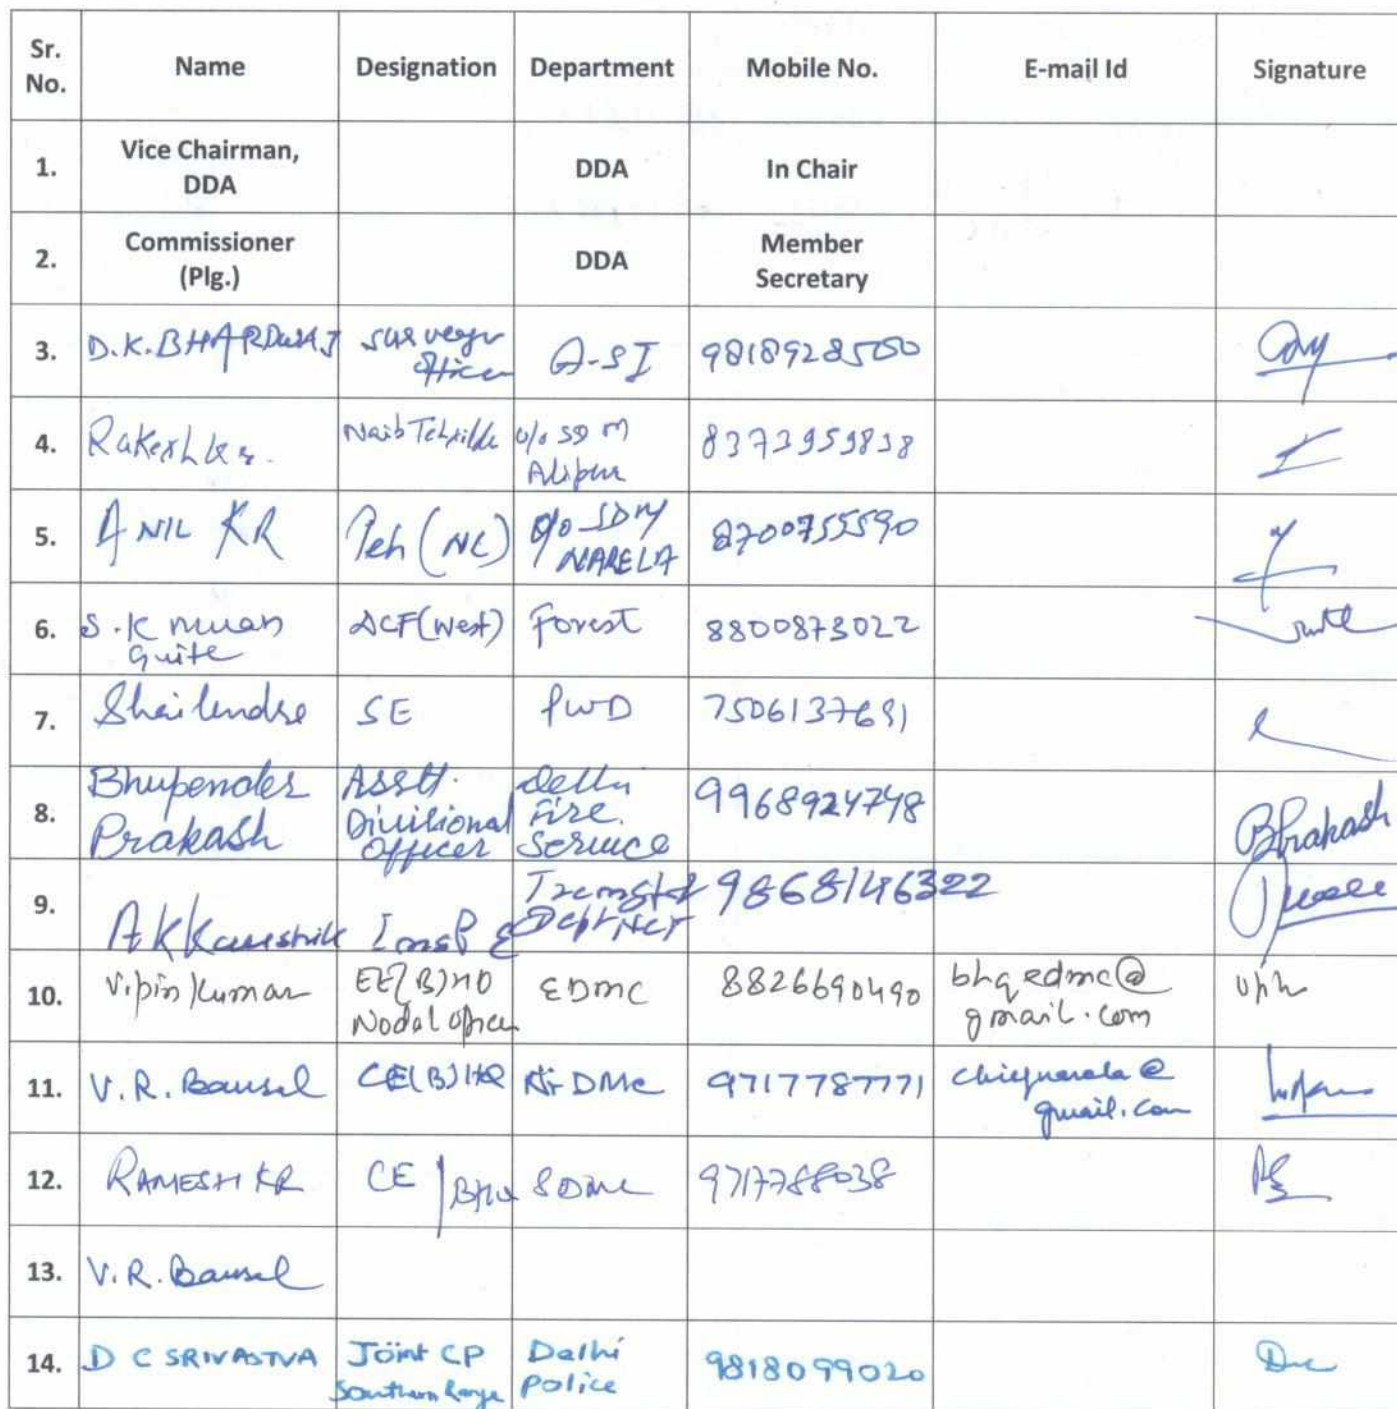 Sr. No. Name Designation Department Mobile No. E-mail Id Signature
1. Vice Chairman, DDA DDA In Chair
2. Commissioner (Plg.) DDA Member Secretary
3. D.K. BHARDWAJ Surveyor Officer A-SI 9818928500
4. Rakesh Kr. Naib Tehsilda o/o SDM Alipur
5. ANIL KR Teh (NL) o/o SDM NARELA 8700755590
6. S.K muan Guite ACF (West) Forest 8800873022
7. Shailendse SE PWD 7506137691
8. Bhupender Prakash Asstt. Divisional Officer Delhi Fire. Service 9968924748 BPrakash
9. AK Kaushik 9868146322
10. Vipin Kumar EE(B)HQ Nodal Officer EDMC 8826690490 bhqedmc@ gmail.com
11. V.R. Bansal CE(B)HQ Nr DMC 9717787771 gmail.com
12. RAMESH KR CE SDMC 9717788038
13. V.R. Bansal
14. D C SRIVASTVA Joint CP Southern Range Delhi Police 9818099020